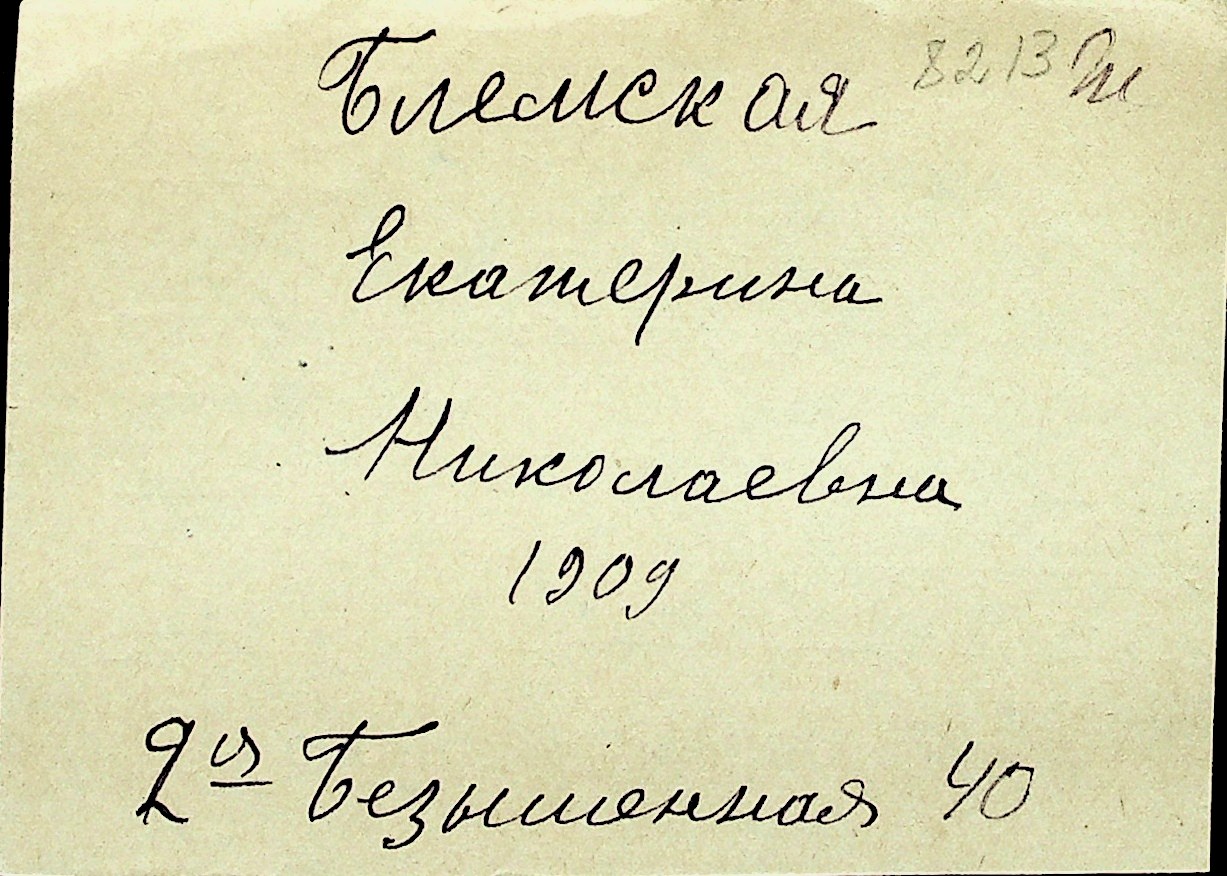 Блемская 8213
Екатерина
Николаевна
1909
2ая Безыменная 40